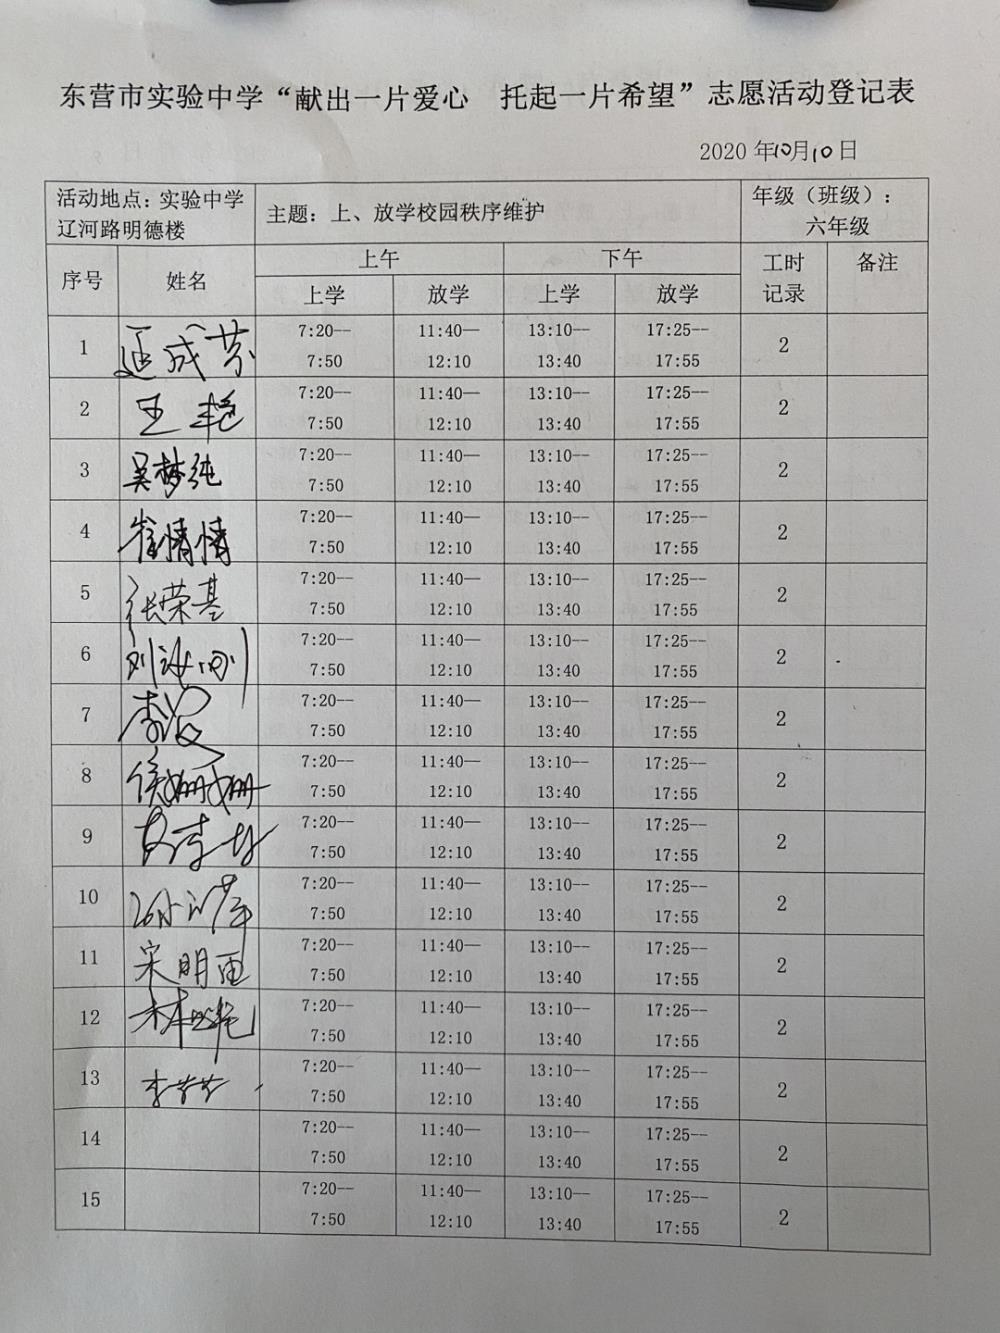 东营市实验中学“献出一片爱心 托起一片希望”志愿活动登记表
2020年10月10日
活动地点：实验中学 辽河路明德楼 主题：上、放学校园秩序维护 年级（班级）：六年级
序号 姓名 上午 下午 工时记录 备注
上学 放学 上学 放学
1 7:20-- 11:40— 13:10-- 17:25-- 2
7:50 12:10 13:40 17:55
2 王艳 7:20-- 11:40— 13:10-- 17:25-- 2
7:50 12:10 13:40 17:55
3 吴梦纯 7:20-- 11:40— 13:10-- 17:25-- 2
7:50 12:10 13:40 17:55
4 崔情情 7:20-- 11:40— 13:10-- 17:25-- 2
7:50 12:10 13:40 17:55
5 张荣基 7:20-- 11:40— 13:10-- 17:25-- 2
7:50 12:10 13:40 17:55
6 7:20-- 11:40— 13:10-- 17:25-- 2
7:50 12:10 13:40 17:55
7 7:20-- 11:40— 13:10-- 17:25-- 2
7:50 12:10 13:40 17:55
8 侯姗姗 7:20-- 11:40— 13:10-- 17:25-- 2
7:50 12:10 13:40 17:55
9 7:20-- 11:40— 13:10-- 17:25-- 2
7:50 12:10 13:40 17:55
10 7:20-- 11:40— 13:10-- 17:25-- 2
7:50 12:10 13:40 17:55
11 7:20-- 11:40— 13:10-- 17:25-- 2
7:50 12:10 13:40 17:55
12 7:20-- 11:40— 13:10-- 17:25-- 2
7:50 12:10 13:40 17:55
13 7:20-- 11:40— 13:10-- 17:25-- 2
7:50 12:10 13:40 17:55
14 7:20-- 11:40— 13:10-- 17:25-- 2
7:50 12:10 13:40 17:55
15 7:20-- 11:40— 13:10-- 17:25-- 2
7:50 12:10 13:40 17:55